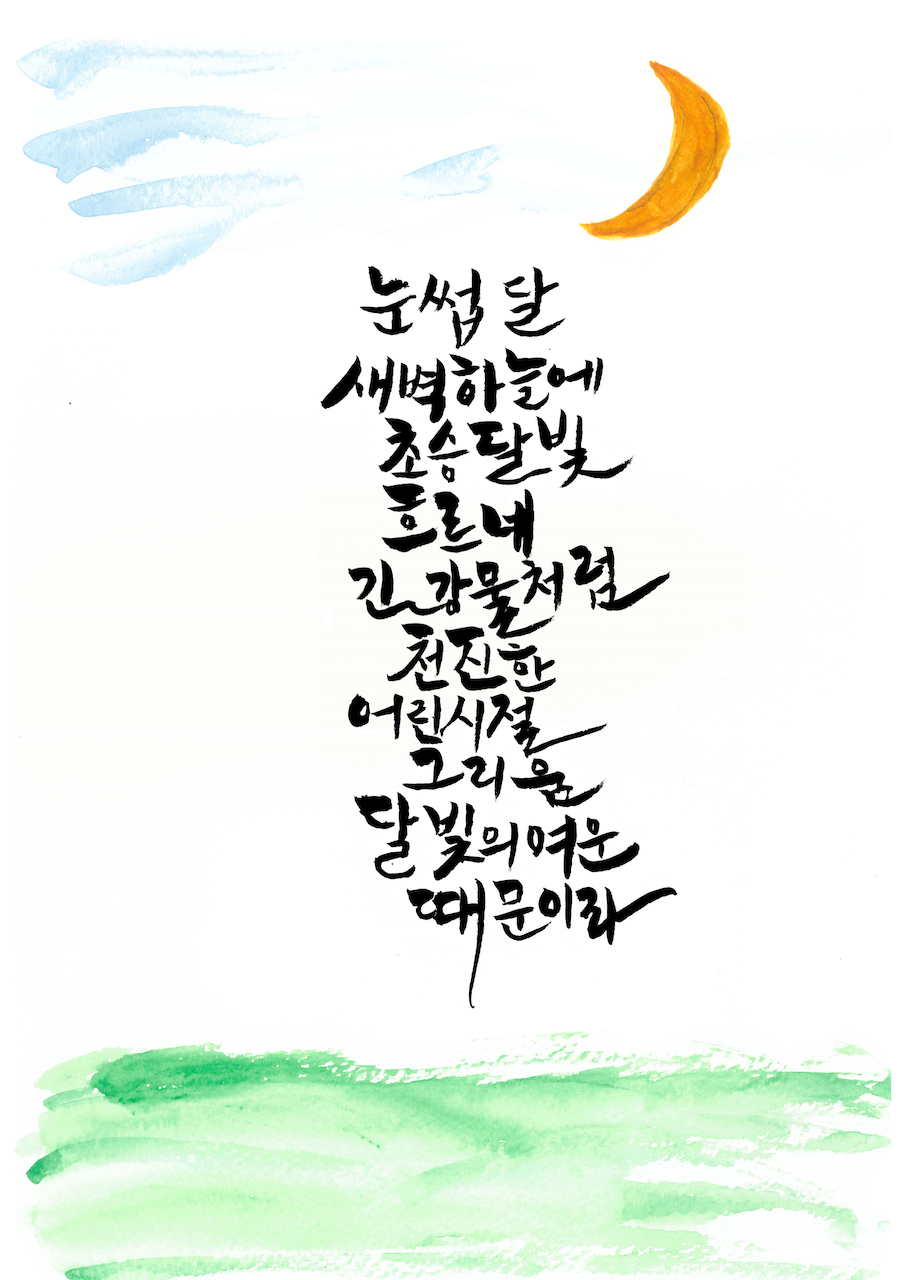 눈썹 달
새벽하늘에
초승달빛
흐르네
긴 강물처럼
천진한
어린시절
그리움
달빛의 여운
때문이라